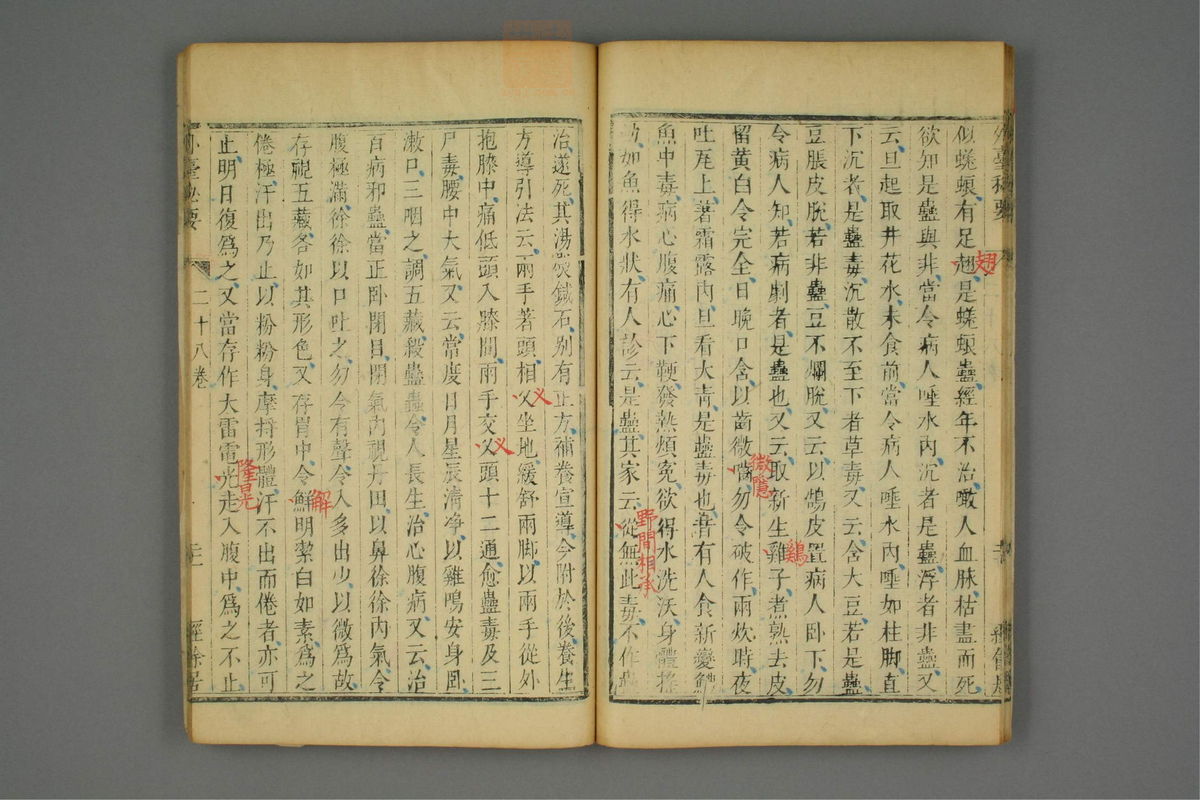 外臺秘要
似蜣蜋有足翅是蜣蜋蠱經年不治噉人血脉枯盡而死
翅
欲知是蠱與非當令病人唾水內沉者是蠱浮者非蠱又
云旦起取井花水未食前當令病人唾水內唾如柱脚直
下沉者是蠱毒沉散不至下者草毒又云含大豆若是蠱
豆脹皮脫若非蠱豆不爛脫又云以鵠皮置病人卧下勿
令病人知若病劇者是蠱也又云取新生雞子煮熟去皮
鷄
留黃白令完全日晚口含以齒微嚙勿令破作兩炊時夜
微隱
吐瓦上著霜露內旦看大青是蠱毒也昔有人食新變鯉
魚中毒病心腹痛心下鞕發熱煩寃欲得水洗沃身體搖
動如魚得水狀有人診云是蠱其家云從無此毒不作蠱
野間相承
治遂死其湯熨鍼石别有正方補養宣導今附於後養生
方導引法云兩手著頭相叉坐地緩舒兩脚以兩手從外
义
抱膝中痛低頭入膝間兩手交叉頭十二通愈蠱毒及三
义
尸毒腰中大氣又云常度日月星辰清净以雞鳴安身卧
漱口三咽之調五藏殺蠱蟲令人長生治心腹病又云治
百病邪蠱當正卧閉目閉氣內視丹田以鼻徐徐內氣令
腹極滿徐徐以口吐之勿令有聲令入多出少以微爲故
存視五藏各如其形色又存胃中令鮮明潔白如素爲之
解
倦極汗出乃止以粉粉身摩捋形體汗不出而倦者亦可
止明日復爲之又當存作大雷電光走入腹中爲之不止
隆晃
外臺秘要
二十八卷
經餘居